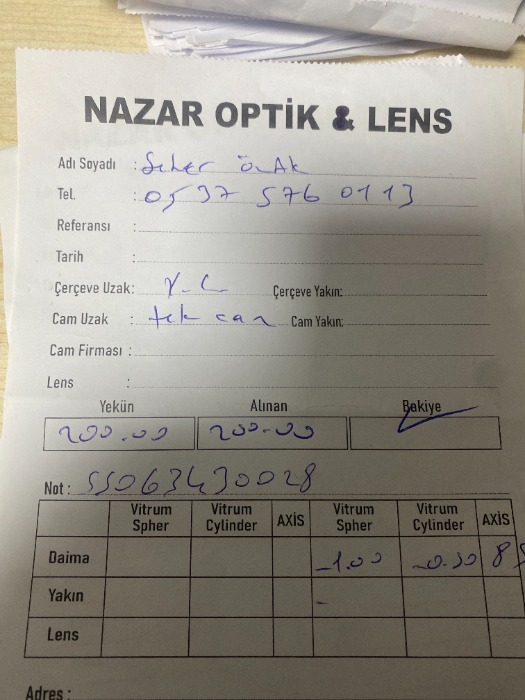 NAZAR OPTİK & LENS
Adı Soyadı : Seher
Tel. : 0537 576 0113
Referansı :
Tarih :
Çerçeve Uzak: Çerçeve Yakın:
Cam Uzak : tek cam Cam Yakın:
Cam Firması :
Lens :
Yekün Alınan Bakiye
200.00 200.00
Not : 55063430028
Vitrum Spher Vitrum Cylinder AXİS Vitrum Spher Vitrum Cylinder AXİS
Daima -1.00
Yakın -
Lens
Adres :